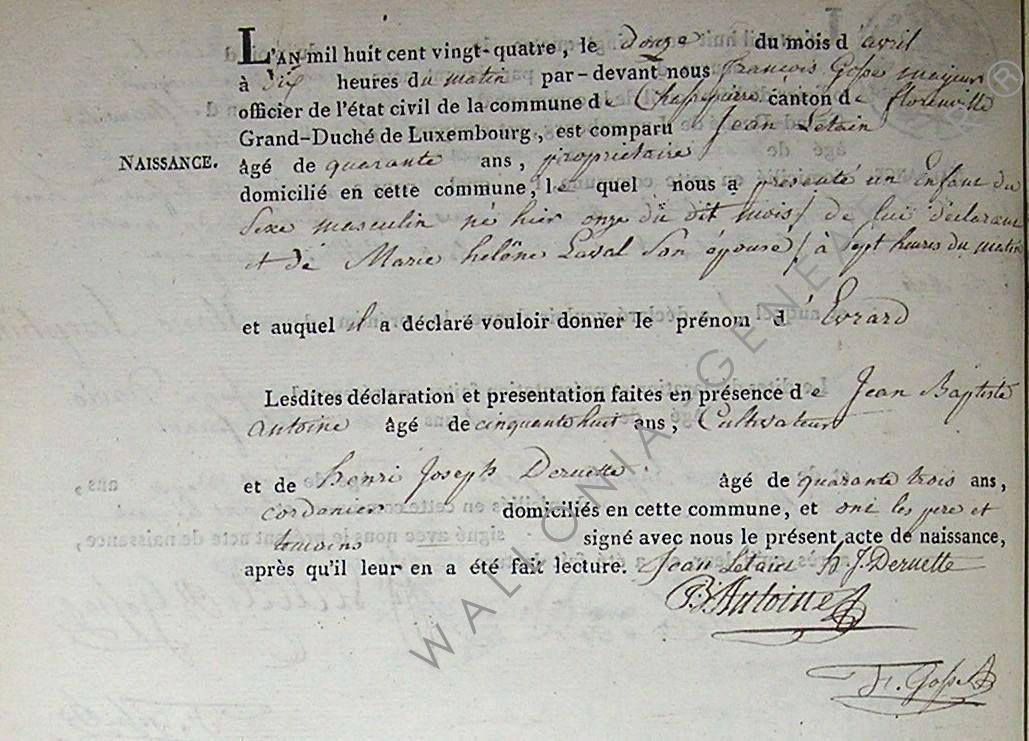 L'AN mil huit cent vingt-quatre, le douze du mois d'avril
à dix heures du matin par-devant nous françois Gosse mayeur
officier de l'état civil de la commune de Chassepierre canton de florenville
Grand-Duché de Luxembourg, est comparu Jean Letain
NAISSANCE. âgé de quarante ans, proprietaire
domicilié en cette commune, lequel nous a présenté un Enfant du
Sexe masculin né hier onze du dit mois / de lui déclarant
et de Marie heléne Laval Son épouse / à Sept heures du matin
et auquel il a déclaré vouloir donner le prénom d'Evrard
Lesdites déclaration et presentation faites en présence de Jean Baptiste
Antoine âgé de cinquante huit ans, Cultivateur
et de henri Joseph Deruette âgé de quarante trois ans,
cordonier domiciliés en cette commune, et ont les pere et
temoins signé avec nous le présent acte de naissance,
après qu'il leur en a été fait lecture. Jean Letain h J. Deruette
B Antoine
fr. Gosse
WALLONIA GENEA
®